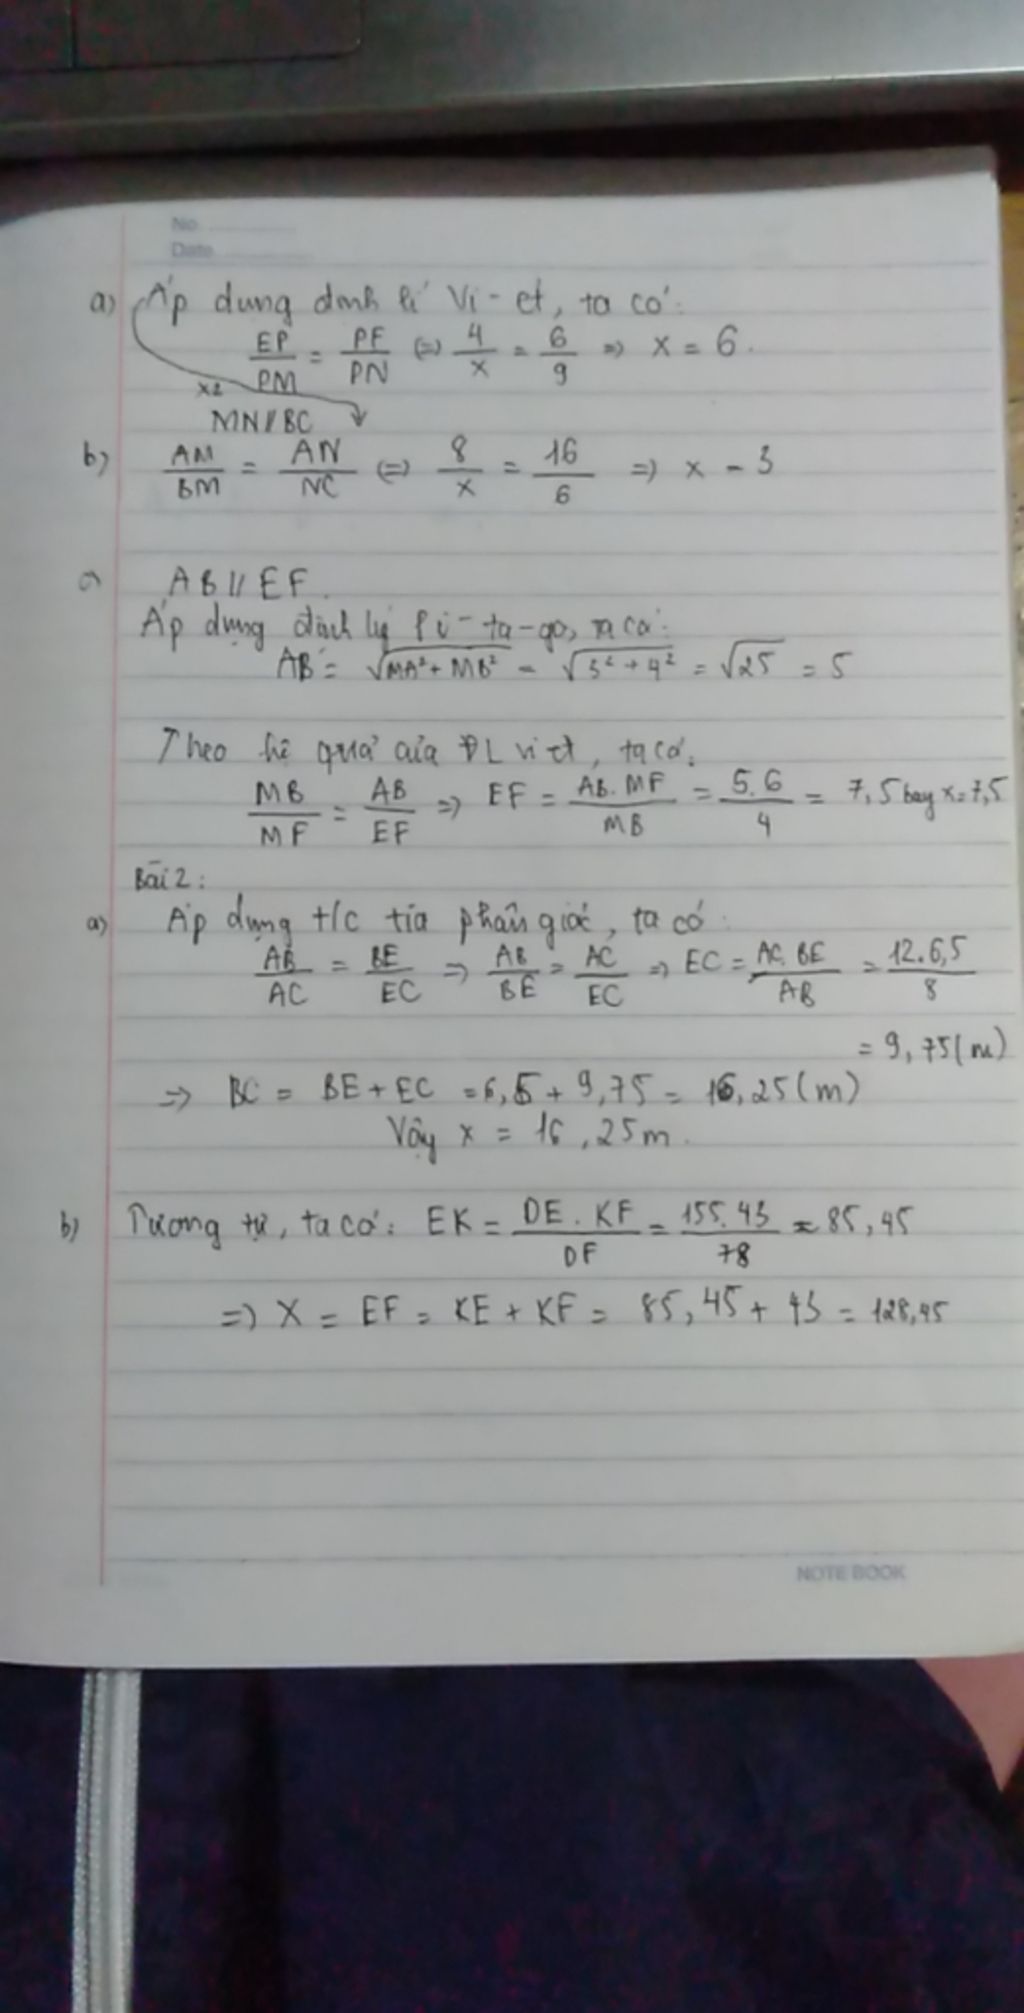 No.
Date
a) Áp dung dinh lí Vi-et, ta có:
EP/PM = PF/PN <=> 4/x = 6/9 => x = 6.
x2
MN//BC
b) AM/BM = AN/NC <=> 8/x = 16/6 => x = 3
c) AB // EF.
Áp dụng định lý Pi-ta-go, ta có:
AB = √MA²+MB² = √3²+4² = √25 = 5
Theo hệ quả của ĐL viet, ta có:
MB/MF = AB/EF => EF = AB.MF/MB = 5.6/4 = 7,5 hay x=7,5
Bài 2:
a) Áp dụng t/c tia phân giác, ta có:
AB/AC = BE/EC => AB/BE = AC/EC => EC = AC.BE/AB = 12.6,5/8
= 9,75(m)
=> BC = BE+EC = 6,5 + 9,75 = 16,25(m)
Vậy x = 16,25m.
b) Tương tự, ta có: EK = DE.KF/DF = 155.43/78 ≈ 85,45
=> X = EF = KE + KF = 85,45 + 43 = 128,45
NOTE BOOK